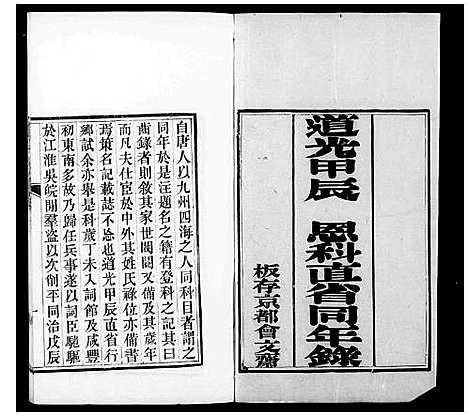 道光甲辰　恩科直省同年錄
板存京都會文齋
自唐人以九州四海之人同科目者謂之
同年於是汪題名之籍有登科之記其曰
齒錄者則敘其家世閥閱又備及其年歲
而凡夫仕宦於中外其姓氏祿位亦備書
焉策名記載志不忘也道光甲辰直省行
鄉試余亦舉是科歲丁未入詞館及咸豐
初東南多故乃歸任兵事遂以詞臣馳驅
於江淮吳皖閒羣盜以次削平同治戊辰